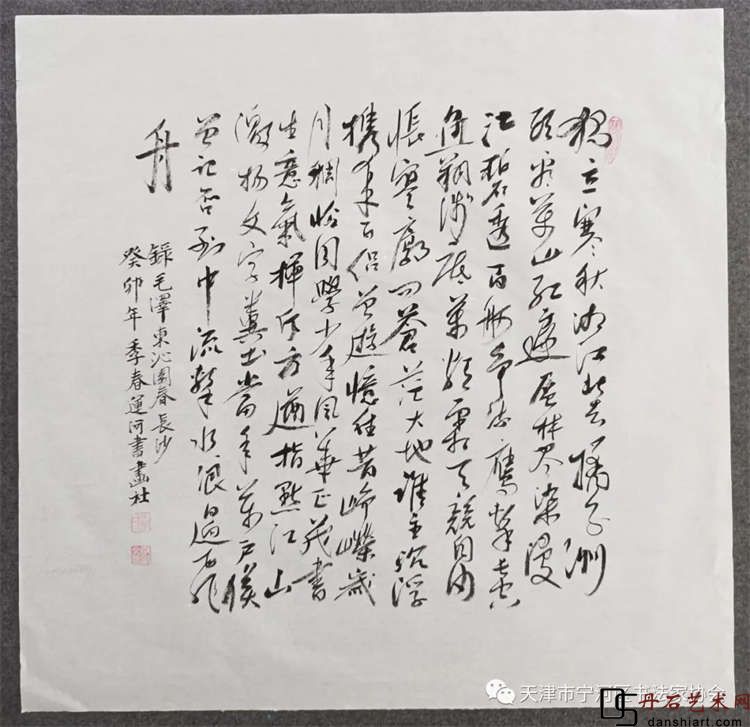 独立寒秋湘江北去橘子洲
頭看萬山红遍層林尽染漫
江碧透百舸争流鹰擊長空
魚翔淺底萬類霜天競自由
悵寥廓问蒼茫大地谁主沉浮
携来百侣曾遊憶往昔崢嶸歲
月稠恰同學少年風華正茂書
生意氣揮斥方遒指點江山
激揚文字糞土當年萬户侯
曾記否到中流擊水浪遏飛
舟
錄毛澤東沁園春長沙
癸卯年季春運河書畫社
天津市宁河区书法家协会
丹石艺术网
danshiart.com